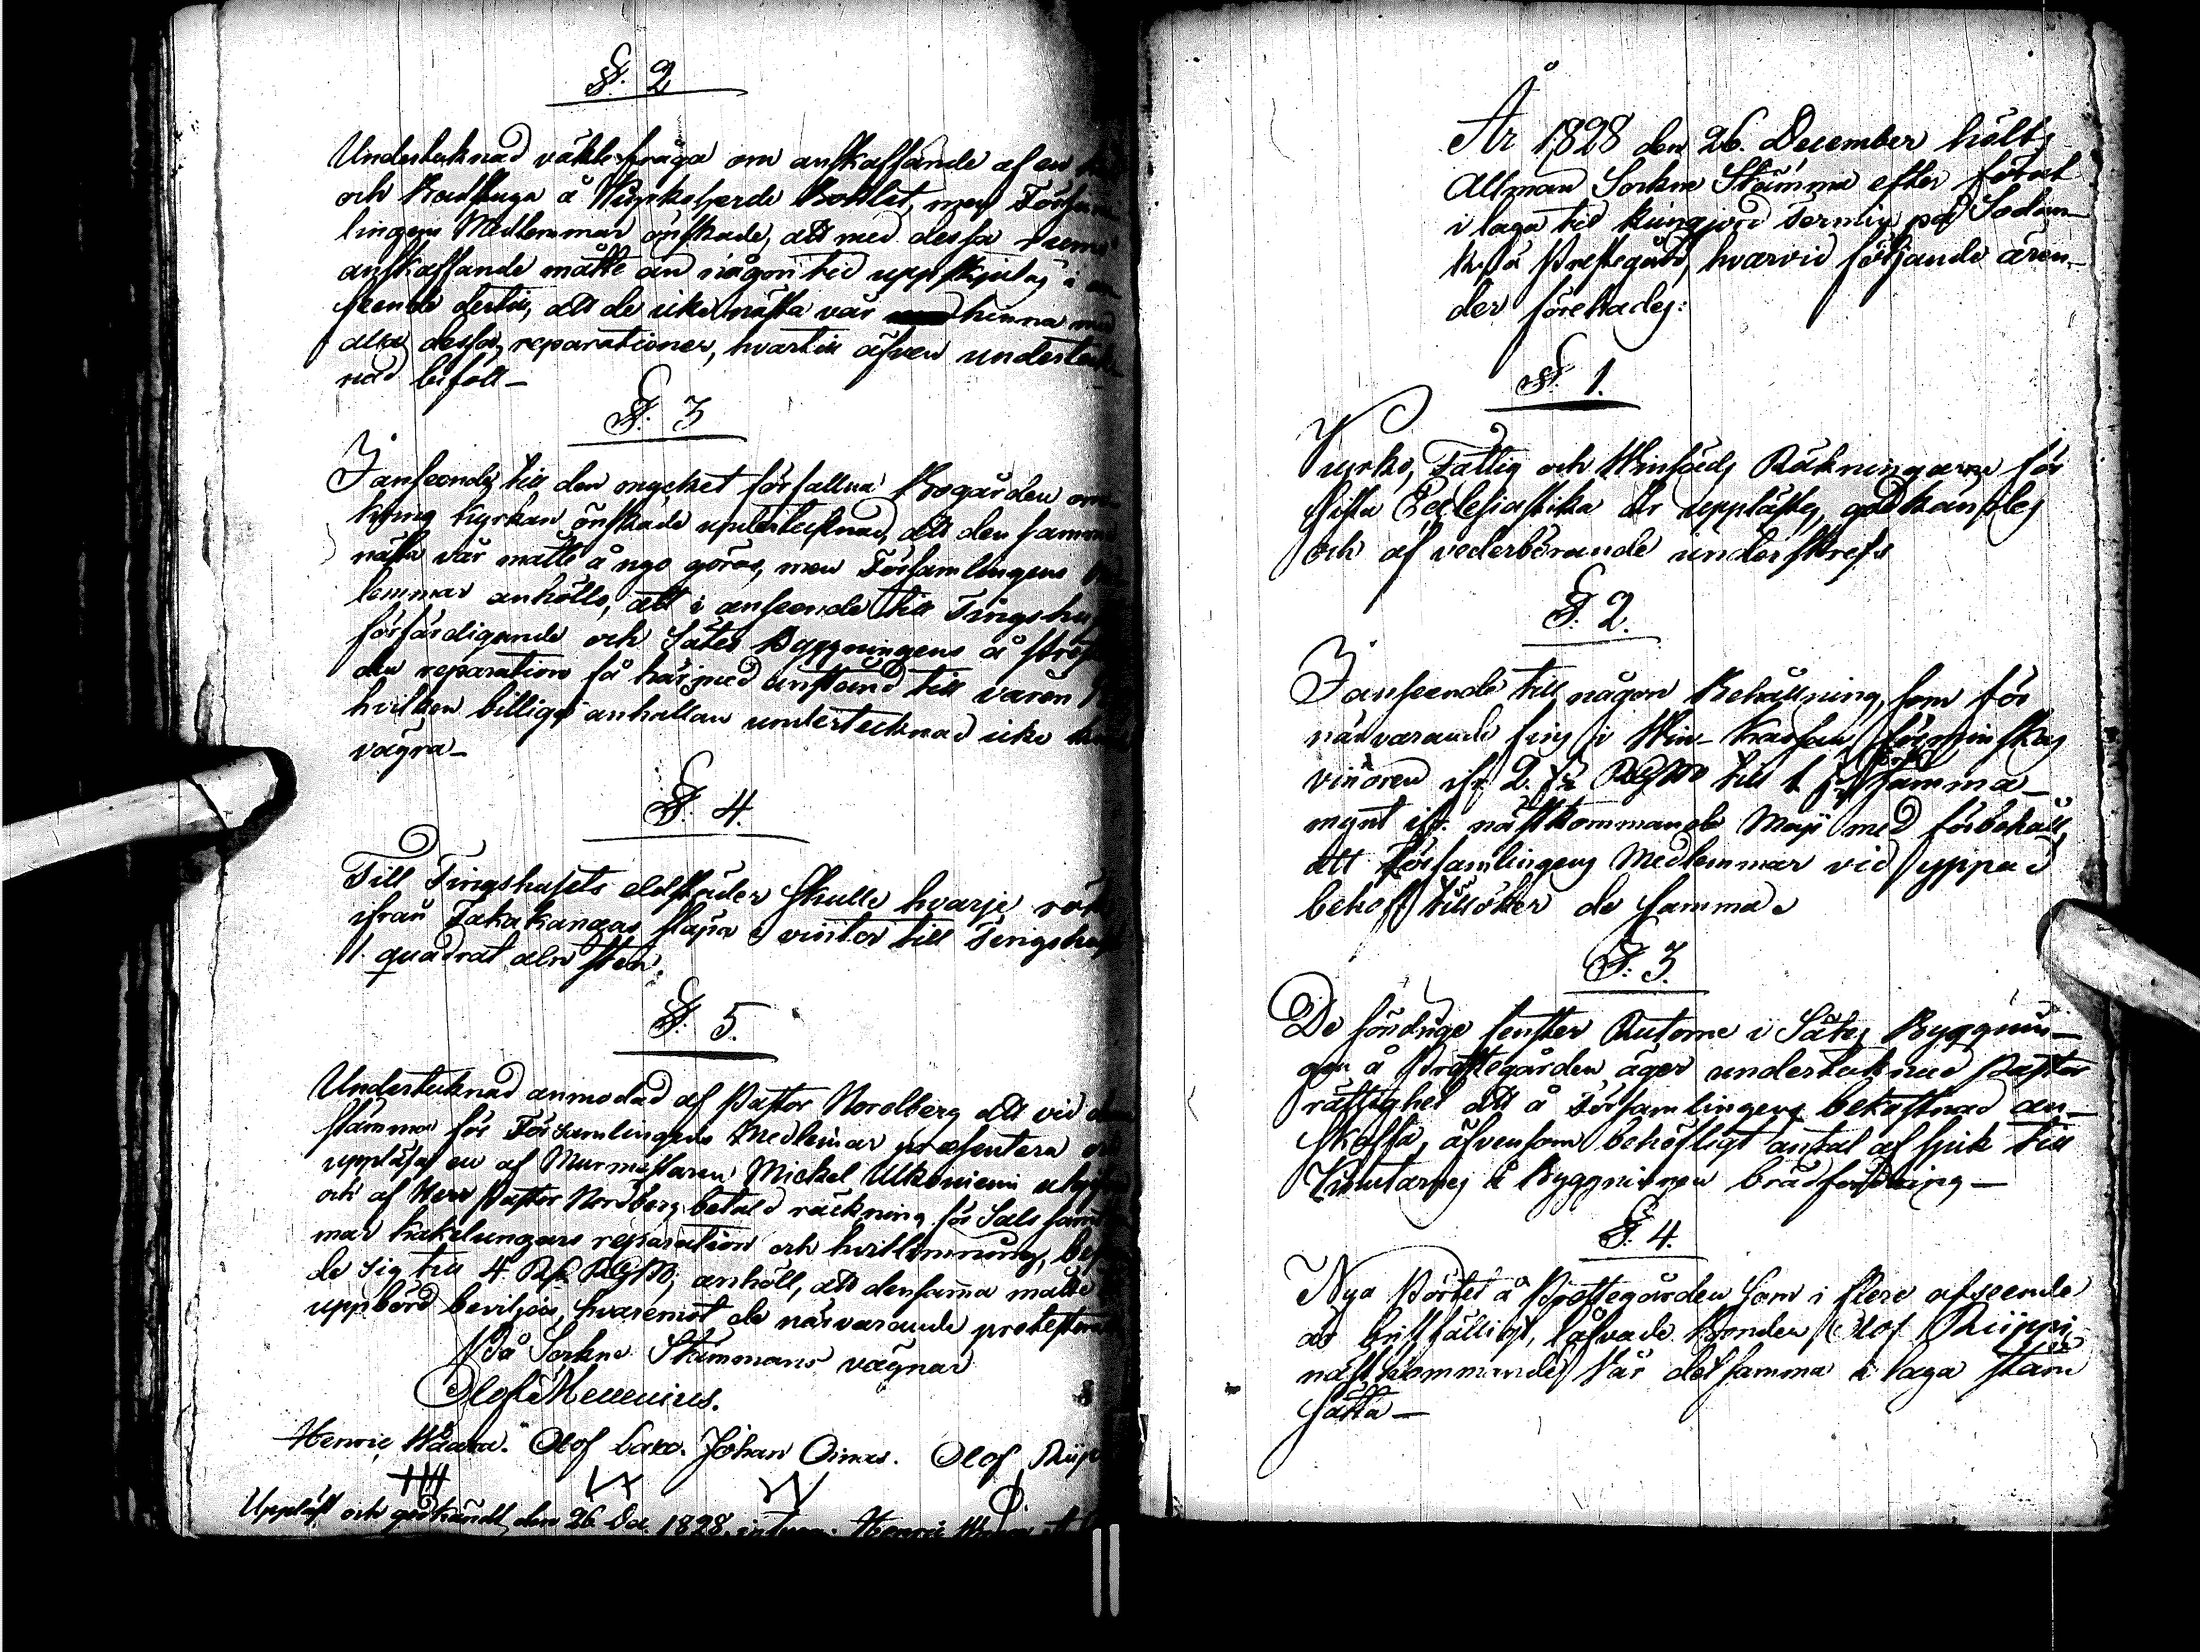 §. 2
Undertecknad väkte fråga om anskaffande af en
och Badstuga å Kyrkoherde Bohlet, men Försam
lingens Medlemmar önskade, att med dessa rums
anskaffande måtte än någon tid uppskjutas i an
seende dertill, att de icke nästa vår hinna med
alla dessa reparationer, hvartill äfven underteck
nad biföll -
§. 3
I anseende till den mycket förfallna Bogården om
kring kyrkan önskade undertecknad, att den samma
nästa vår måtte å nyo göras, men Församlingens
lemmar anhöllo, att i anseende till Tingshus
förfärdigande och Sätes Byggningens å
den reparation få härmed anstånd till våren
hvilken billiga anhållan undertecknad icke
vägra -
§. 4.
Till Tingshusets eldstäder skulle hvarje rök
ifrån Takakangas släpa i vinter till Tingshus
1. quadrat aln sten.
§. 5.
Undertecknad anmodad af Pastor Nordberg att vid
stämma för Församlingens Medlemar præsentera och
uppläsa en af Murmästaren Mickel Ulkoniemi
och af Herr Pastor Nordberg betald räckning för Sals
mar kakelungars reparation och hvitlimning,
de sig till 4 Rf. RGSM, anhöll, att densamma måtte
uppbörd beviljas, hvaremot de närvarande protestera
På Sockne Stämmans vägnar
Olof Mellenius.
Henric Waara. Olof Caxo. Johan Oinas. Olof Riip
Uppläst och godkändt den 26 Dec. 1828
År 1828 den 26. December hölts
Allman Sockne Stämma efter förut
i laga tid kungjord termin på Sodan-
kylä Prestegård, hvarvid följande ären-
der förehades:
§. 1.
Kyrko, Fattig och Winsäds Räkningarne för
sista Ecclesiastika År upplästes, godkändes
och af vederbörande underskrefs
§. 2.
I anseende till någon Behållning, som för
närvarande fins i Win-Kassan förminskas
vinören ifr. 2. RGSM till 1 samma
mynt ifr. nästkommande Maji med förbehåll,
att Församlingens Medlemmar vid yppad
behof tillöker de samma
§. 3.
De sönduge fenster Rutorne i Sätes Byggnin-
gen å Prestegården äger undertecknad Pastor
rättighet att å Församlingens bekostnad an-
skaffa, äfvensom behöfligt antal af spik till
Knutarnes å Byggningen brädfordring -
§. 4.
Nya Pörtet å Prestegården som i flere afseende
är bristfälligt, låfvade Bonden Olof Riippi
nästkommande Vår detsamma i laga stånd
sätta -